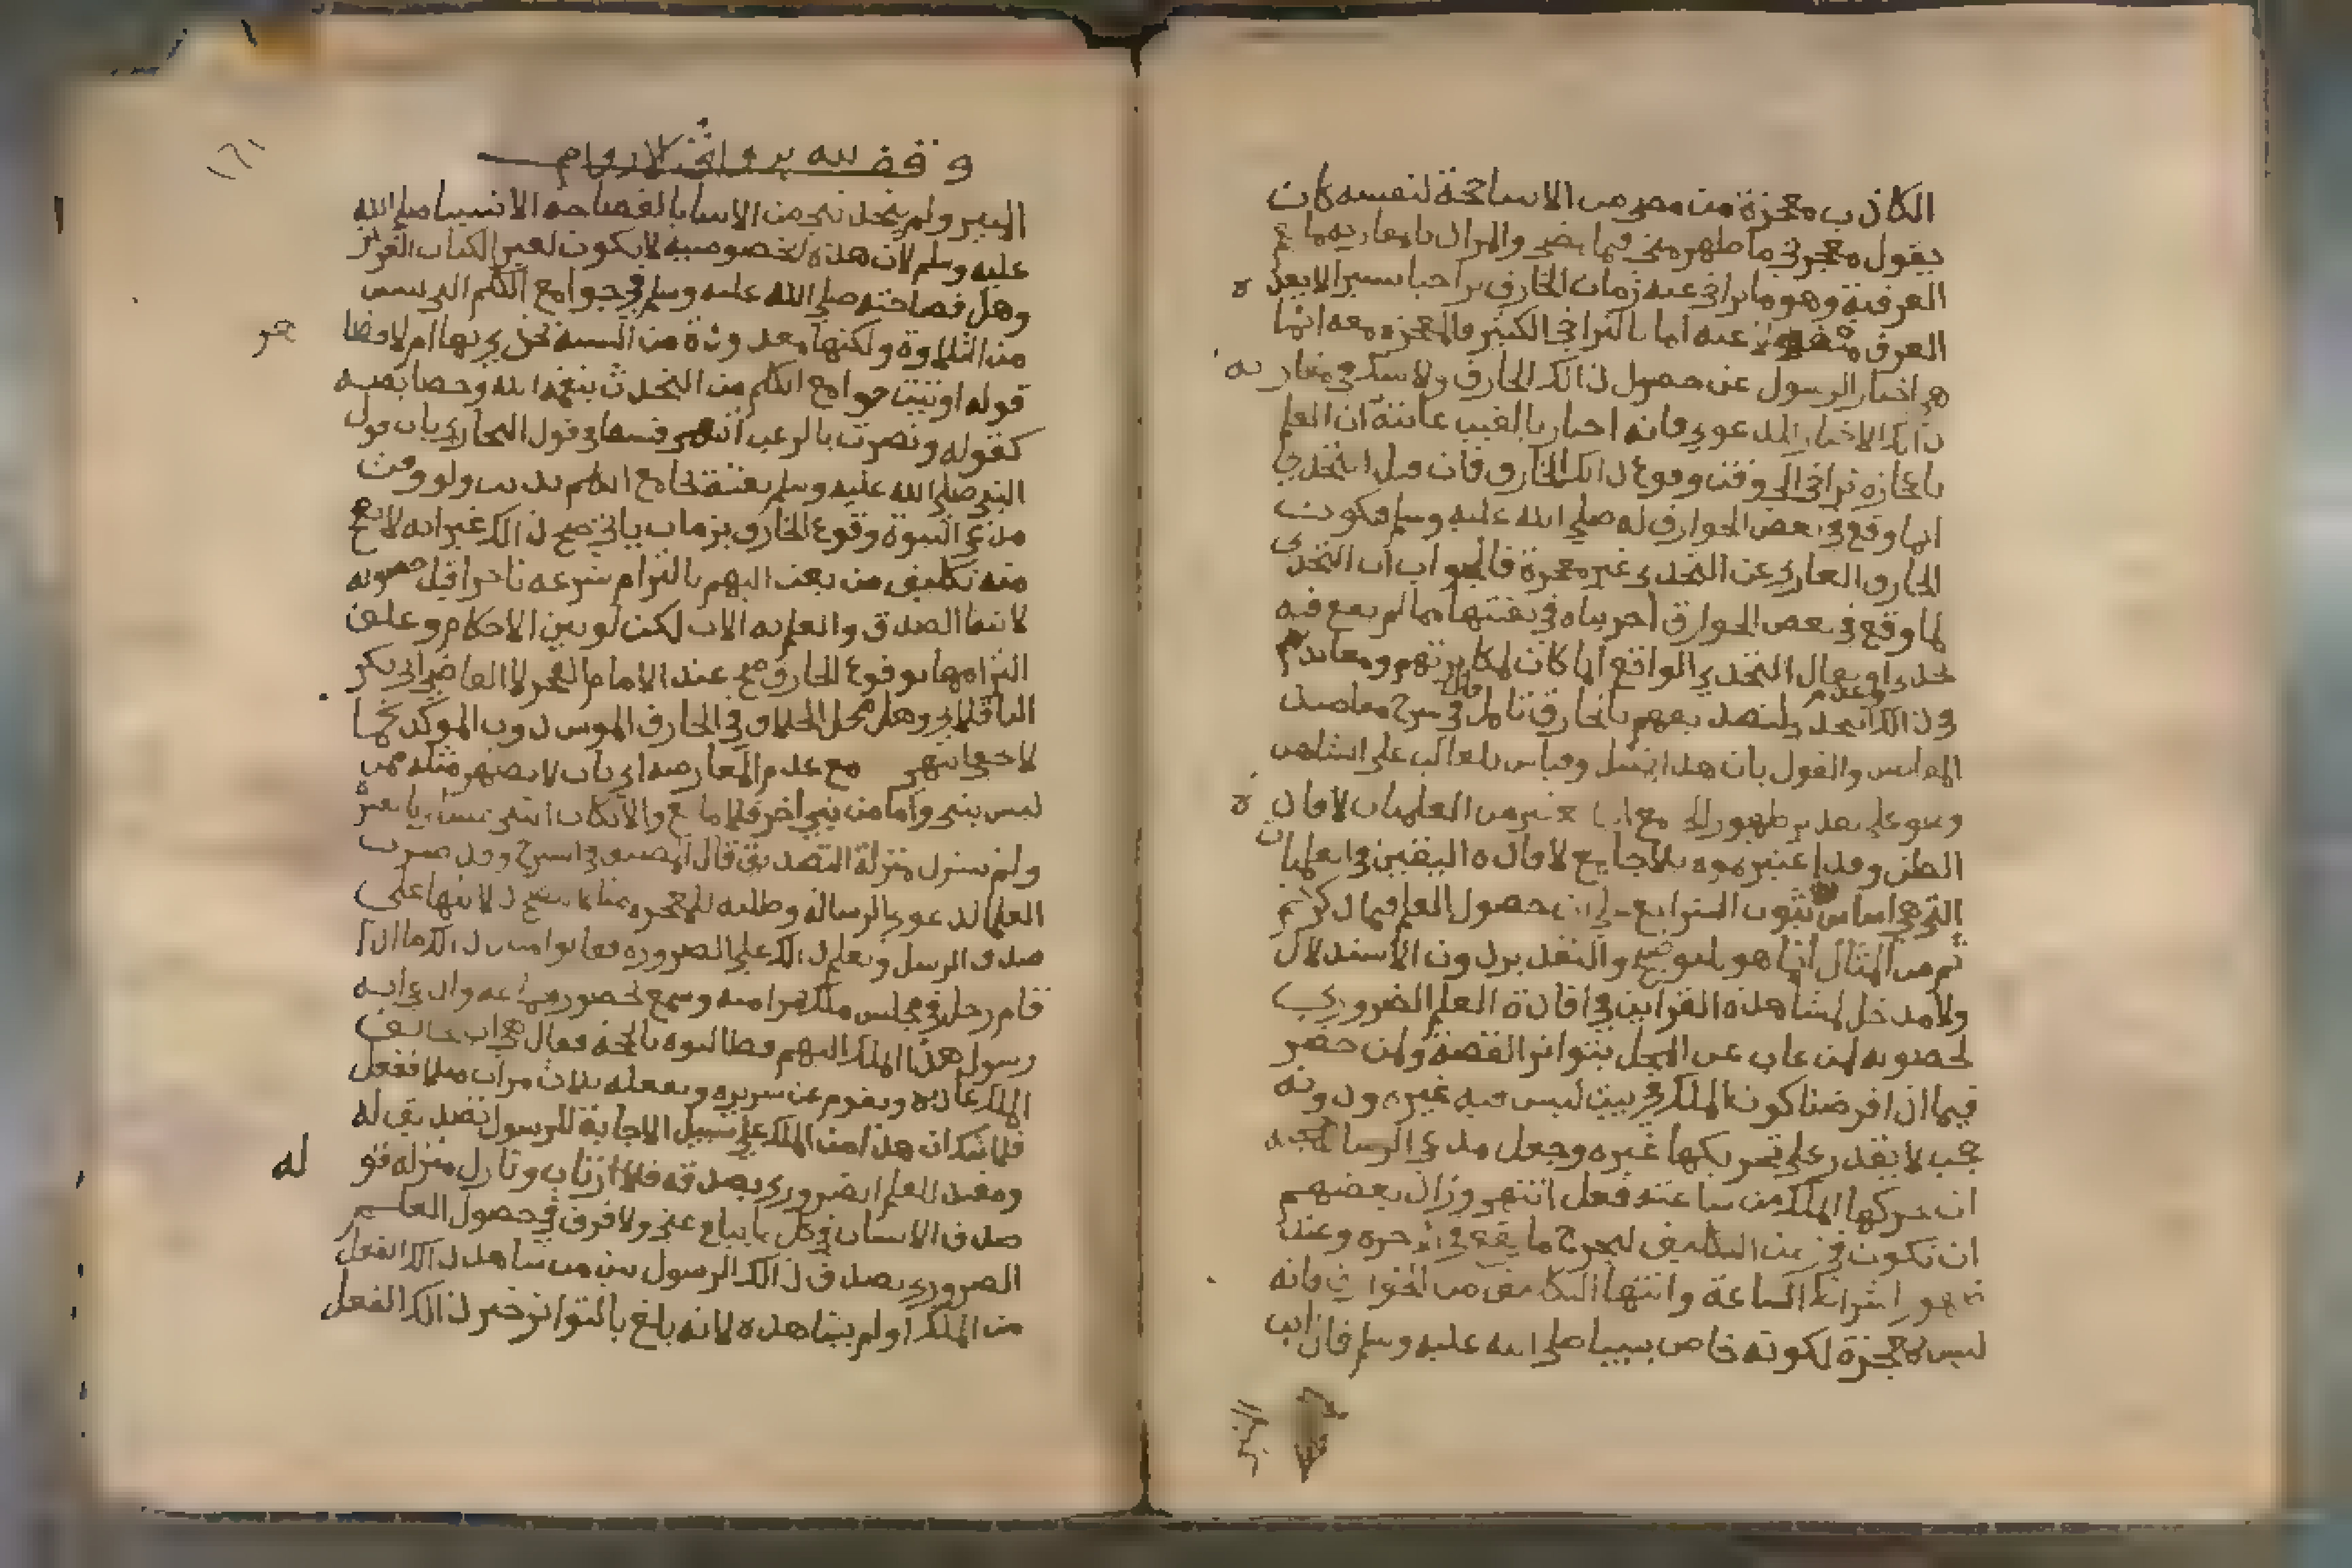 الكاذب معجزة من مصر من الاسالحة لنفسه كان
يقول معجزتي ما ظهر مني فيما مضى والمراد بالمقارنة ما
العرفية وهو ما يرى عنه زمان الخارق تراخيا يسيرا لا يعد ه
العرف منفصلا عنه اما بالتراخي الكثير فالمعجزة معه انما
هو اخبار الرسول عن حصول ذالك الخارق ولا شك في مقارنته
ذالك الاخبار للدعوى فانه اخبار بالغيب غايته ان العلم
باعجازه تراخى الى وقت وقوع ذالك الخارق فان قيل التحدي
انما وقع في بعض الخوارق له صلى الله عليه وسلم فيكون
الخارق العاري عن التحدي غير معجزة فالجواب ان التحدي
لما وقع في بعض الخوارق اجريناه في بقيتها مما لم يقع فيه
تحد او يقال التحدي الواقع انما كان لمكابرتهم ومعاندتهم
وعدم تصديقهم بالخارق تامل قال في شرح مقاصد
المقاصد والقول بان هذا تمثيل وقياس للغائب على الشاهد
وهو على تقدير ظهور الجامع انما يعتبر في العمليات لافادة
الظن وقد اعتبرتموه بلا جامع لافادة اليقين في العلميات
التي هي اساس ثبوت الشرايع على ان حصول العلم فيما ذكرتم
ثم من المثال انما هو للتوضيح والتقدير دون الاستدلال
ولا مدخل لمشاهدة القراين في افادة العلم الضروري
لحصوله لمن غاب عن المجلس بتواتر القصة ولمن حضر
فيما اذا فرضنا كون الملك في بيت ليس فيه غيره ودونه
حجب لا يقدر على تحريكها غيره وجعل مدعي الرسالة حجته
ان حركها الملك من ساعته ففعل انتهى وزاد بعضهم
ان تكون في زمن التكليف ليخرج ما يقع في الاخرة وعند
ظهور اشراط الساعة وانتها التكاليف من الخوارق فانه
ليس معجزة لكونه خاص بنبينا صلى الله عليه وسلم قال ابن
وقف لله برواق الاروام
١٦١
المنير ولم يتحد نبي من الانبيا بالفصاحة الا نبينا صلى الله
عليه وسلم لان هذه الخصوصية لا تكون لغير الكتاب العزيز
وهل فصاحته صلى الله عليه وسلم في جوامع الكلم التي ليس
من التلاوة ولكنها معدودة من السنة تحدى بها ام لا وظا
هر
قوله اوتيت جوامع الكلم من التحدث بنعمة الله وخصايصه
كقوله ونصرت بالرعب انتهى وفسقا في قول البخاري باب قول
النبي صلى الله عليه وسلم بعثت بجامع الكلم ولو وقت
مدعي النبوة وقوع الخارق بزمان ياتي صح ذالك غير انه لا يقع
منه تكليف من بعث اليهم بالتزام شرعه ناجزا قبل حصوله
لانتفا الصدق والعلم به الان لكن لو بين الاحكام وعلق
التزامها بوقوع الخارق صح عند الامام الفخر لا القاضي ابي بكر
الباقلاني وهل محل الخلاف في الخارق الموسس دون الموكد كما
لا يخفى انتهى مع عدم المعارضة اي بان لا يظهر مثله ممن
ليس بنبي واما من نبي اخر فلا مانع والا لكان
ولم ينزل منزلة التصديق قال المصنف في الشرح وقد ضرب
العلما لدعوى الرسالة وطلبه للمعجزة مثالا يتضح به دلالتها على
صدق الرسل ويعلم ذالك على الضرورة فقالوا مثال ذالك ما اذا
قام رجل في مجلس ملك بمرا منه وسمع بحضور جماعة وادعى انه
رسول هذا الملك اليهم فطالبوه بالحجة فقال هي ان يخالف
الملك عادته ويقوم عن سريره ويقعد ثلاث مرات مثلا ففعل
فلا شك ان هذا من الملك على سبيل الاجابة للرسول تصديق له
ومفيد للعلم الضروري بصدقه فلا ارتياب ونازل منزلة قو
له
صدق الانسان في كل ما يبلغ عني ولا فرق في حصول العلم
الضروري بصدق ذالك الرسول بين من شاهد ذالك الفعل
من الملك او لم يشاهده لانه بلغ بالتواتر خبر ذالك الفعل